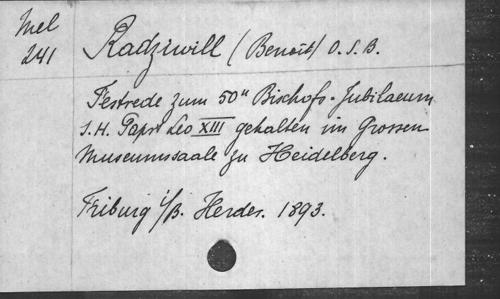 Mel
241
Radziwill (Benoît) O.S.B.
Festrede zum 50n Bischofs-Jubilaeum
S.H. Papst Leo XIII gehalten im Grossen
Museumssaale zu Heidelberg.
Friburg i/B. Herder. 1893.